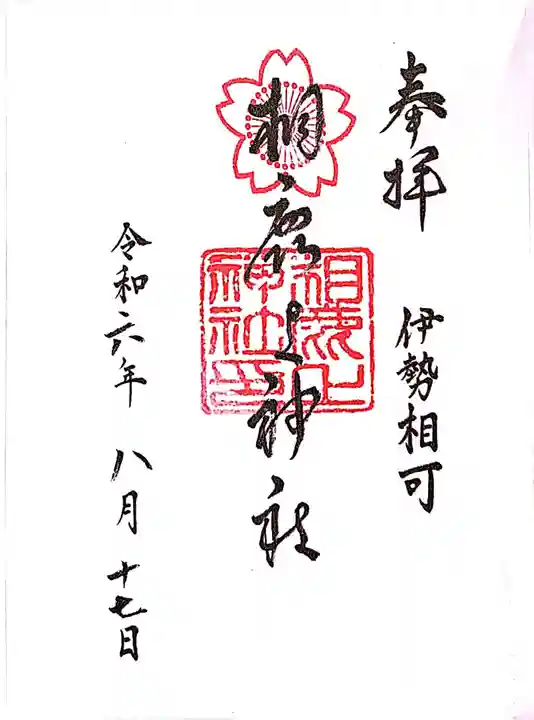 奉拝
伊勢相可
相鹿上神社
相鹿上
神社印
令和六年 八月十七日